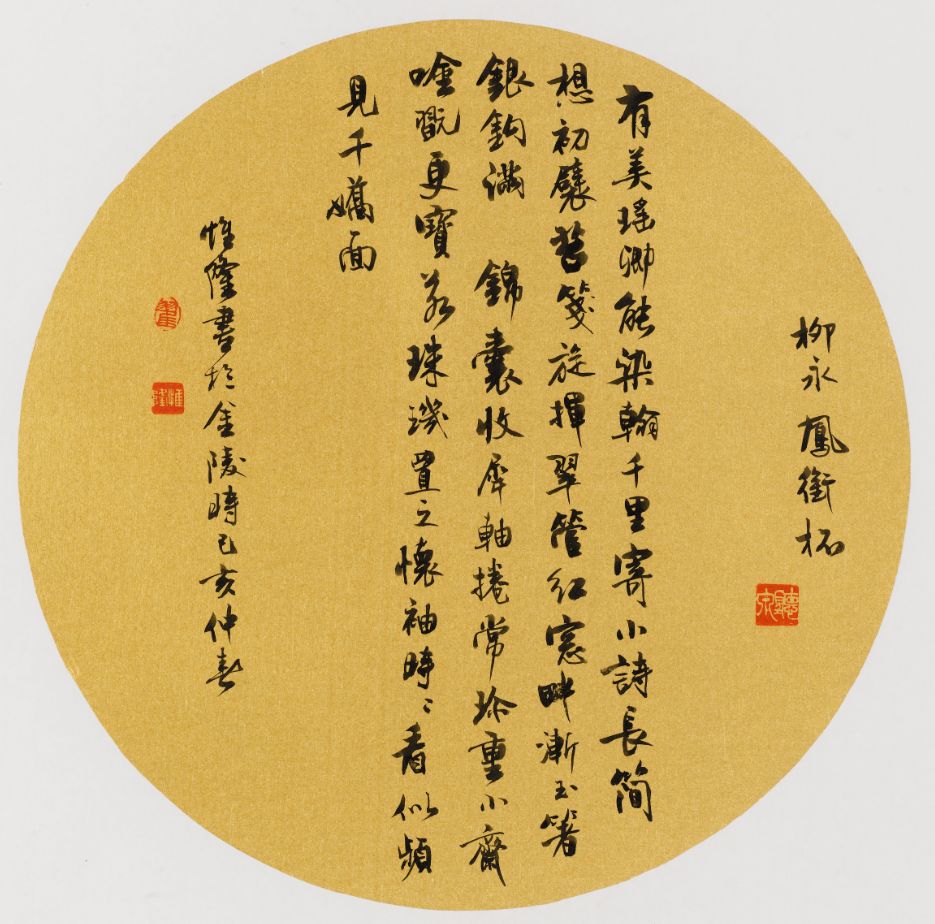 柳永 鳳銜杯
有美瑤卿能染翰千里寄小詩長簡
想初襞苔箋旋揮翠管紅窻畔漸玉箸
銀鉤滿 錦囊收犀軸捲常珍重小齋
吟翫更寶若珠璣置之懷袖時〻看似頻
見千嬌面
惟隆書於金陵時己亥仲春
惟隆